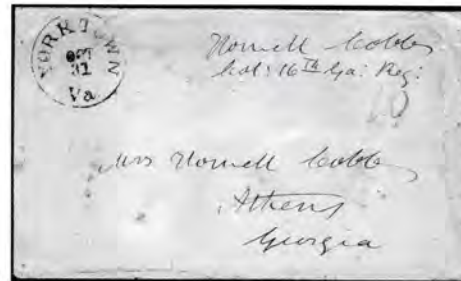 YORKTOWN
OCT
31
Va
Howell Cobb
Col: 16th Ga: Reg:
10
Mrs Howell Cobb
Athens
Georgia